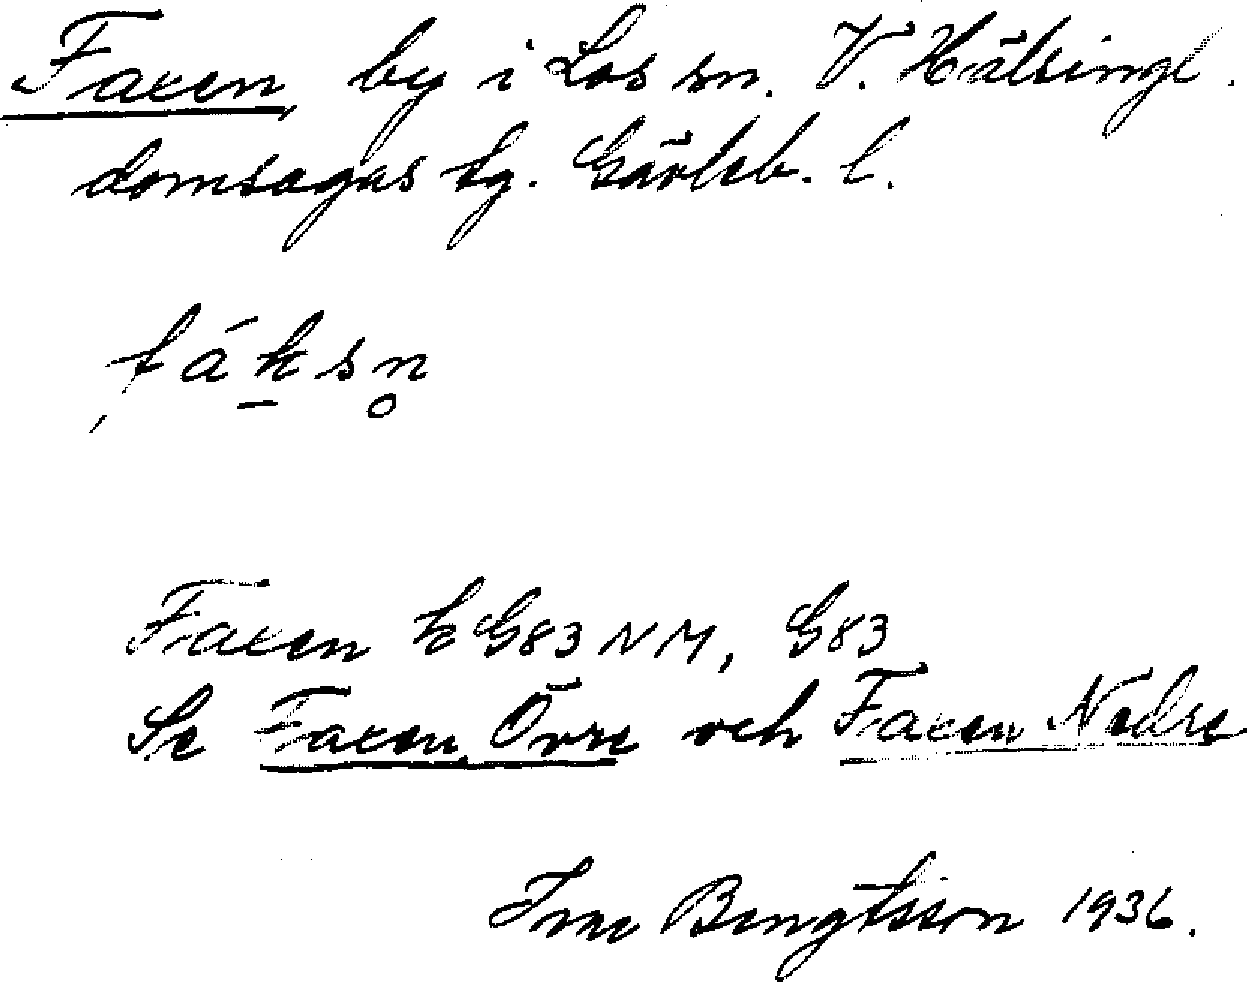 Faxen, by i Los sn. V. Hälsingl.
domsagas tg. Gävleb. l.
fáksn̥
Faxen k G83 NM, G83
Se Faxen, Övre och Faxen Nedre
Bengtsson 1936.